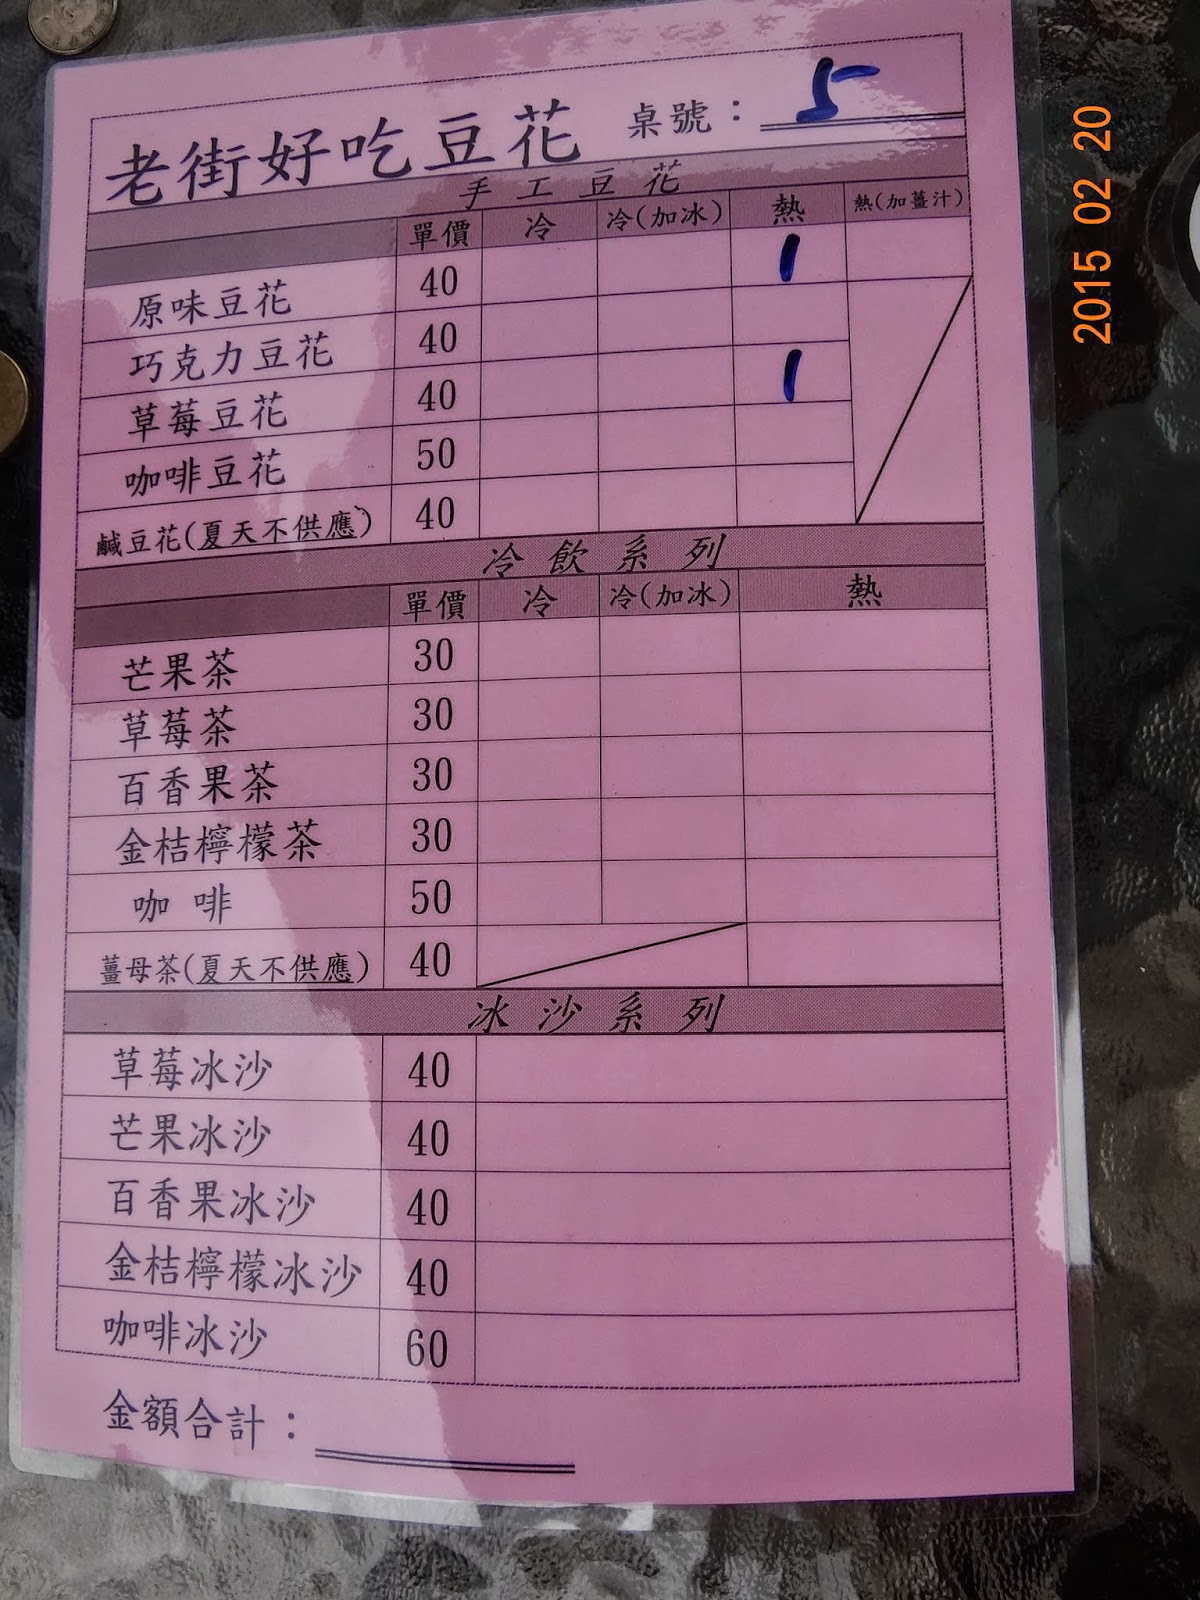 老街好吃豆花 桌號：5
手工豆花
單價 冷 冷(加冰) 熱 熱(加薑汁)
原味豆花 40 1
巧克力豆花 40
草莓豆花 40 1
咖啡豆花 50
鹹豆花(夏天不供應) 40
冷飲系列
單價 冷 冷(加冰) 熱
芒果茶 30
草莓茶 30
百香果茶 30
金桔檸檬茶 30
咖啡 50
薑母茶(夏天不供應) 40
冰沙系列
草莓冰沙 40
芒果冰沙 40
百香果冰沙 40
金桔檸檬冰沙 40
咖啡冰沙 60
金額合計：
2015 02 20